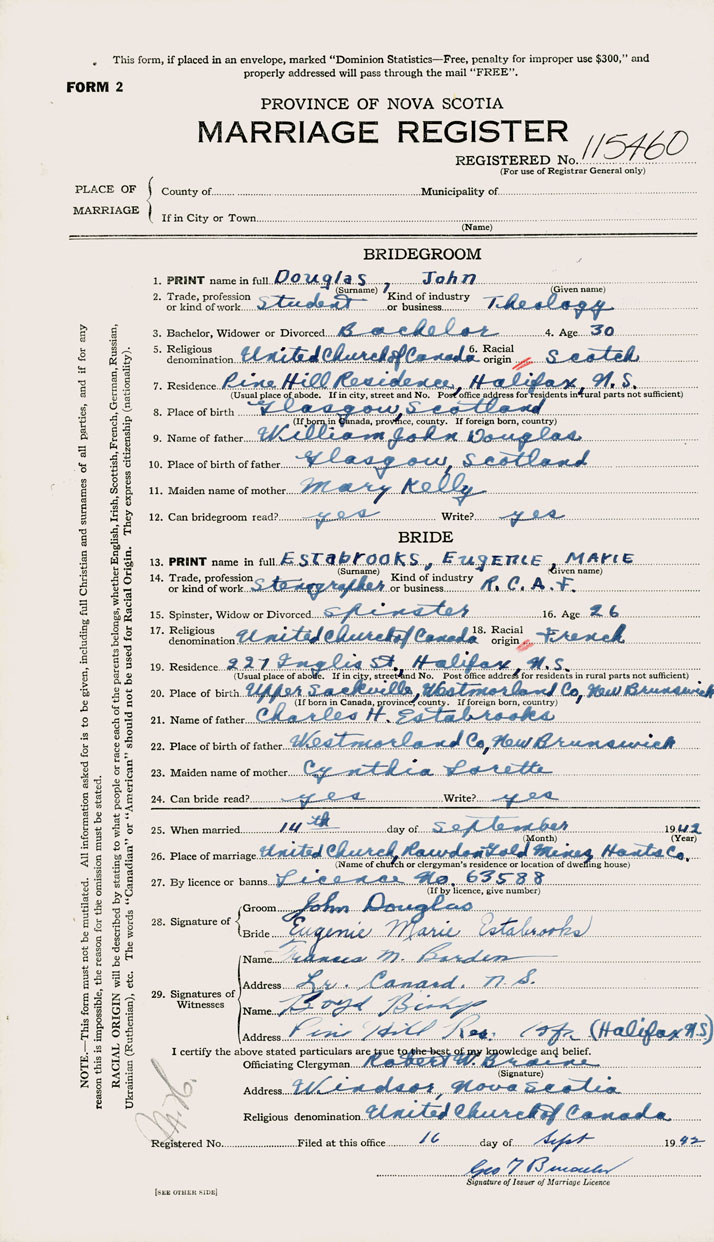 This form, if placed in an envelope, marked "Dominion Statistics—Free, penalty for improper use $300," and
properly addressed will pass through the mail "FREE".
FORM 2
PROVINCE OF NOVA SCOTIA
MARRIAGE REGISTER
REGISTERED No. 115460
(For use of Registrar General only)
PLACE OF MARRIAGE
County of Municipality of
If in City or Town
(Name)
BRIDEGROOM
1. PRINT name in full Douglas, John
(Surname) (Given name)
2. Trade, profession or kind of work Student Kind of industry or business Theology
3. Bachelor, Widower or Divorced Bachelor 4. Age 30
5. Religious denomination United Church of Canada 6. Racial origin Scotch
7. Residence Pine Hill Residence, Halifax, N.S.
(Usual place of abode. If in city, street and No. Post office address for residents in rural parts not sufficient)
8. Place of birth Glasgow, Scotland
(If born in Canada, province, county. If foreign born, country)
9. Name of father William John Douglas
10. Place of birth of father Glasgow, Scotland
11. Maiden name of mother Mary Kelly
12. Can bridegroom read? yes Write? yes
BRIDE
13. PRINT name in full ESTABROOKS, EUGENIE, MARIE
(Surname) (Given name)
14. Trade, profession or kind of work Stenographer Kind of industry or business R.C.A.F.
15. Spinster, Widow or Divorced Spinster 16. Age 26
17. Religious denomination United Church of Canada 18. Racial origin French
19. Residence 227 Inglis St., Halifax, N.S.
(Usual place of abode. If in city, street and No. Post office address for residents in rural parts not sufficient)
20. Place of birth Upper Sackville, Westmorland Co, New Brunswick
(If born in Canada, province, county. If foreign born, country)
21. Name of father Charles H. Estabrooks
22. Place of birth of father Westmorland Co, New Brunswick
23. Maiden name of mother Cynthia Lorette
24. Can bride read? yes Write? yes
25. When married 14th day of September 1942
(Month) (Year)
26. Place of marriage United Church, Rawdon Gold Mines, Hants Co.
(Name of church or clergyman's residence or location of dwelling house)
27. By licence or banns Licence No. 63588
(If by licence, give number)
28. Signature of
Groom John Douglas
Bride Eugenie Marie Estabrooks
29. Signatures of Witnesses
Name Frances M. Borden
Address Lr. Canard. N.S.
Name Boyd Bishop
Address Pine Hill Res. (Halifax N.S)
I certify the above stated particulars are true to the best of my knowledge and belief.
Officiating Clergyman Robert W. Braine
(Signature)
Address Windsor, Nova Scotia
Religious denomination United Church of Canada
Registered No. Filed at this office 16 day of Sept 1942
Geo T
Signature of Issuer of Marriage Licence
[SEE OTHER SIDE]
NOTE.—This form must not be mutilated. All information asked for is to be given, including full Christian and surnames of all parties, and if for any
reason this is impossible, the reason for the omission must be stated.
RACIAL ORIGIN will be described by stating to what people or race each of the parents belongs, whether English, Irish, Scottish, French, German, Russian,
Ukrainian (Ruthenian), etc. The words "Canadian" or "American" should not be used for Racial Origin. They express citizenship (nationality).